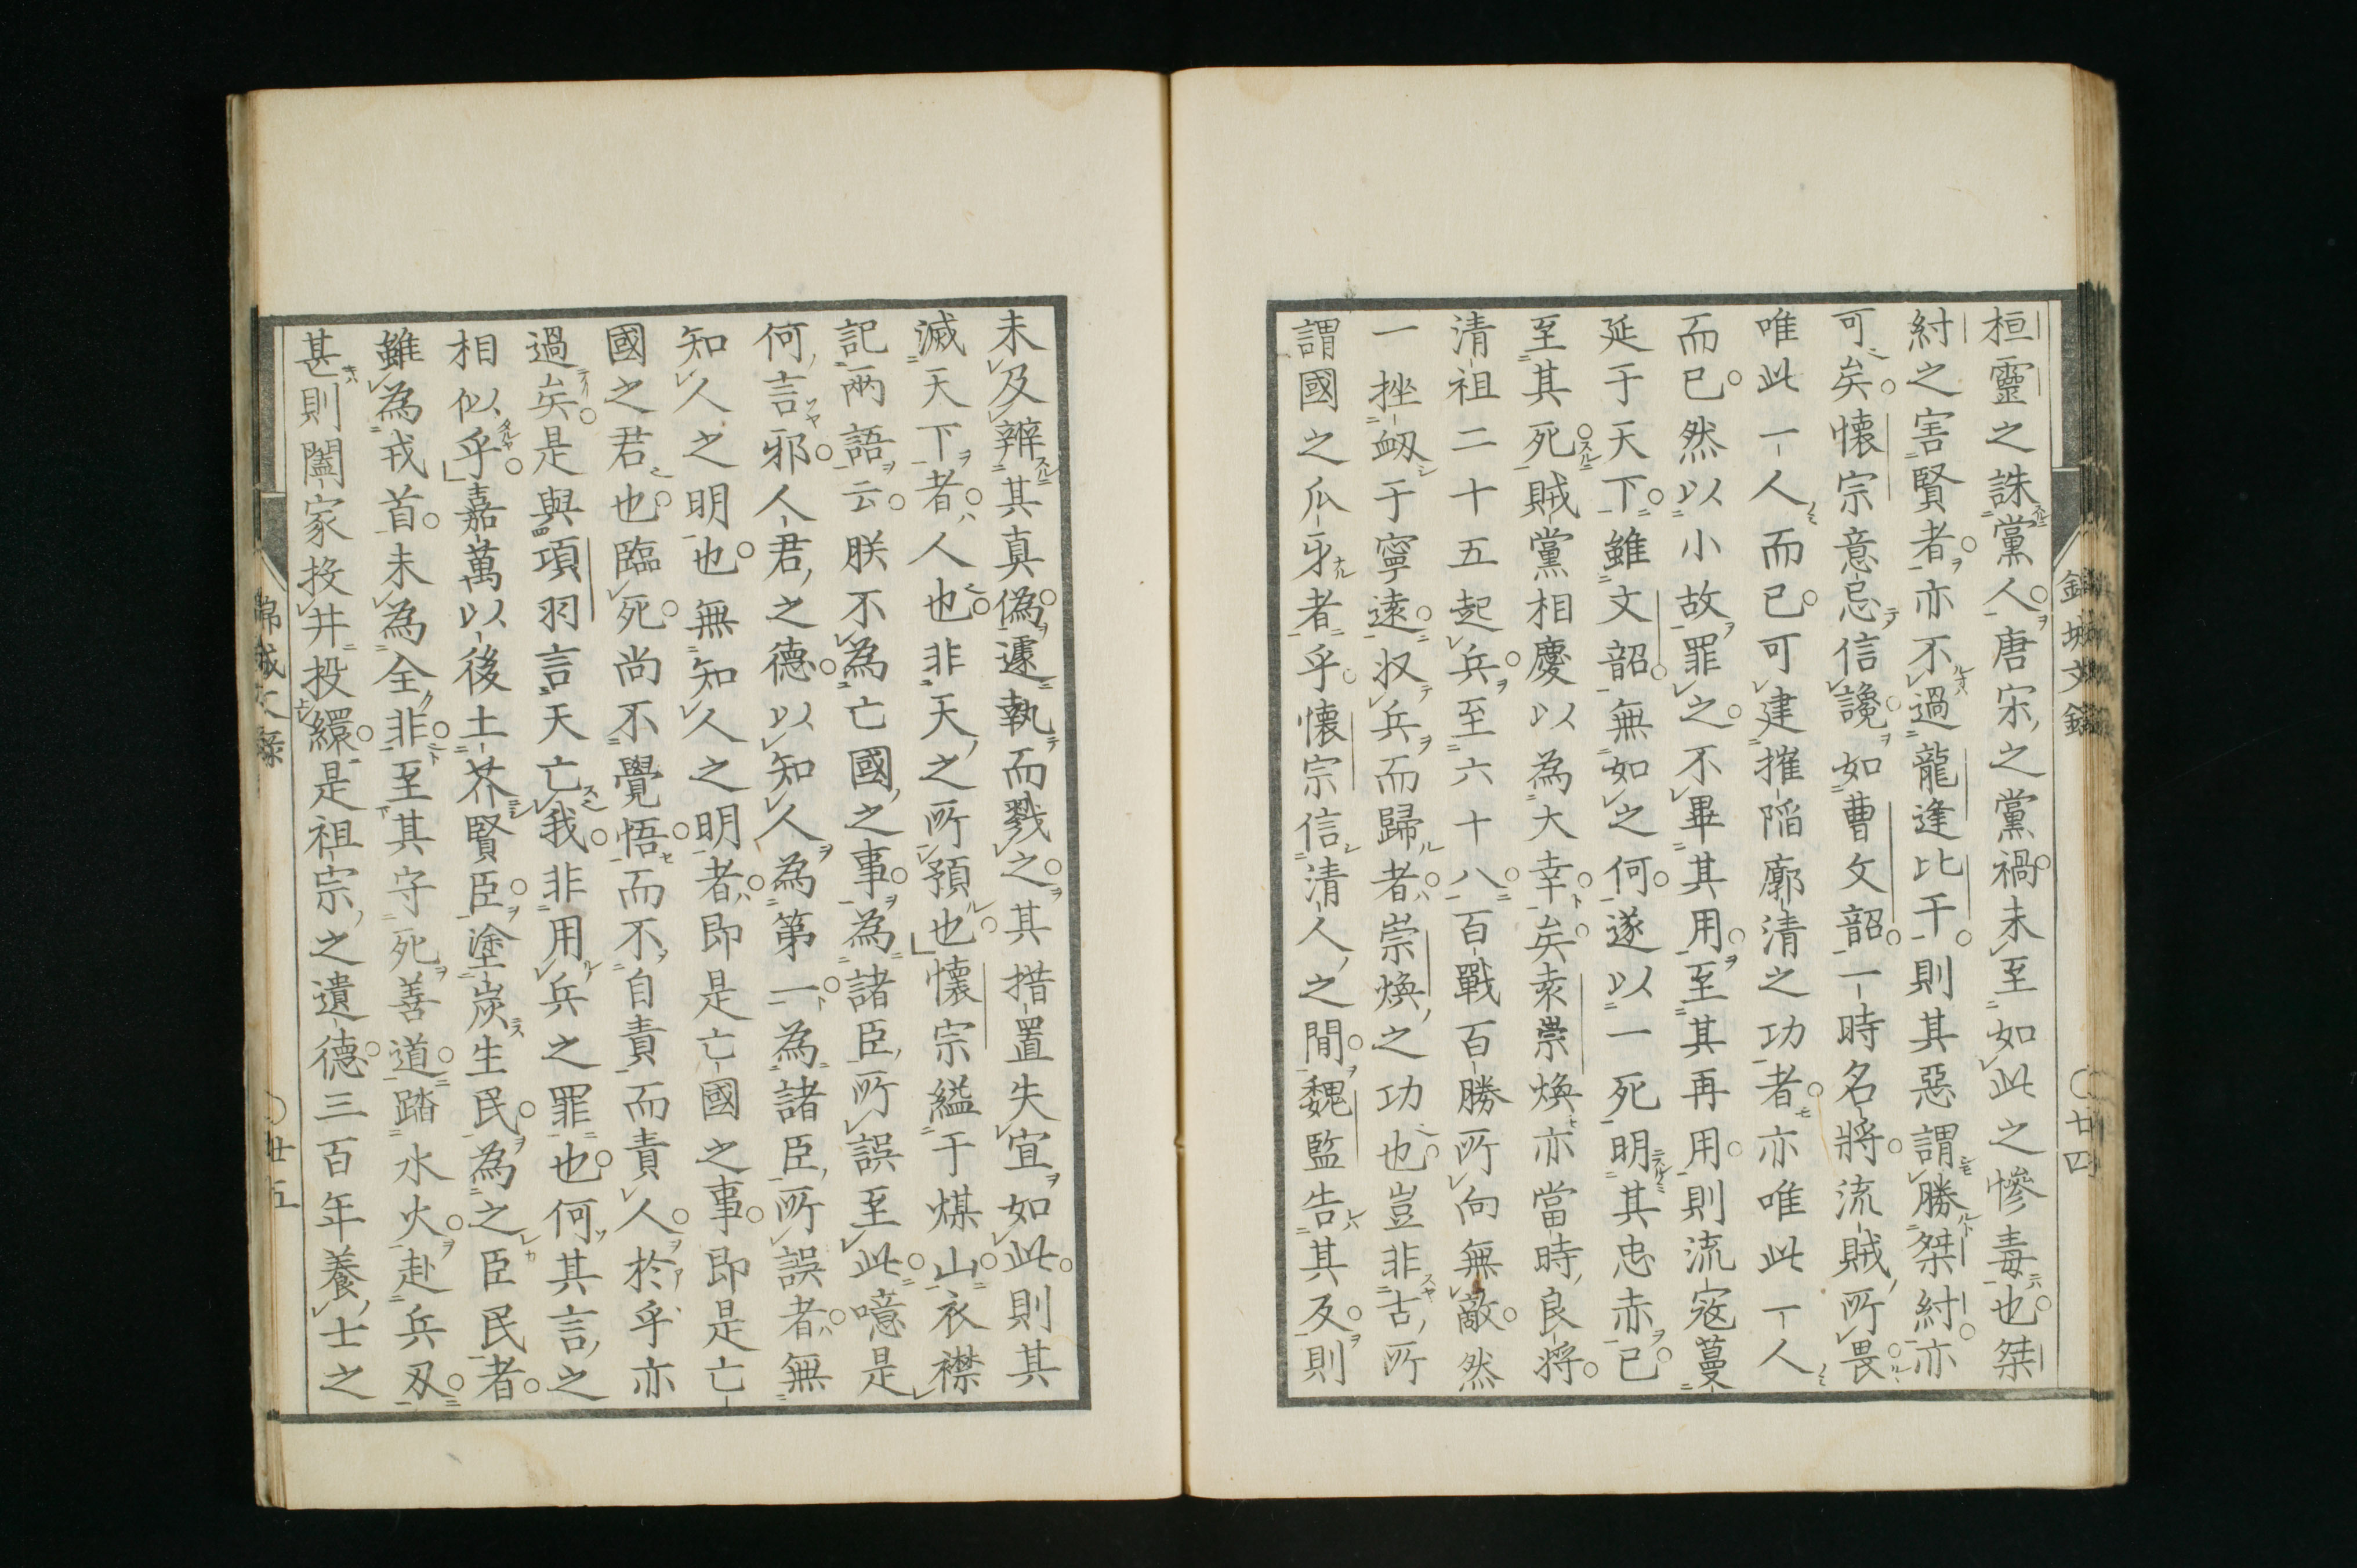 桓靈之誅黨人唐宋之黨禍未至如此之慘毒也桀
紂之害賢者亦不過龍逢比干則其惡謂勝桀紂亦
可矣懷宗意忌信讒如曹文韶一時名將流賊所畏
唯此一人而已可建摧陷廓清之功者亦唯此一人
而已然以小故罪之不畢其用至其再用則流寇蔓
延于天下雖文韶無如之何遂以一死明其忠赤已
至其死賊黨相慶以為大幸矣袁崇煥亦當時良將
清祖二十五起兵至六十八百戰百勝所向無敵然
一挫衂于寧遠収兵而歸者崇煥之功也豈非古所
謂國之爪牙者乎懷宗信清人之間魏監告其反則
廿四
未及辨其真偽遽執而戮之其措置失宜如此則其
滅天下者人也非天之所預也懷宗縊于煤山衣襟
記兩語云朕不為亡國之事為諸臣所誤至此噫是
何言邪人君之德以知人為第一為諸臣所誤者無
知人之明也無知人之明者即是亡國之事即是亡
國之君也臨死尚不覺悟而不自責而責人於乎亦
過矣是與項羽言天亡我非用兵之罪也何其言之
相似乎嘉萬以後土芥賢臣塗炭生民為之臣民者
雖為戎首未為全非至其守死善道踏水火赴兵刃
甚則闔家投井投繯是祖宗之遺德三百年養士之
錦城文錄
廿五